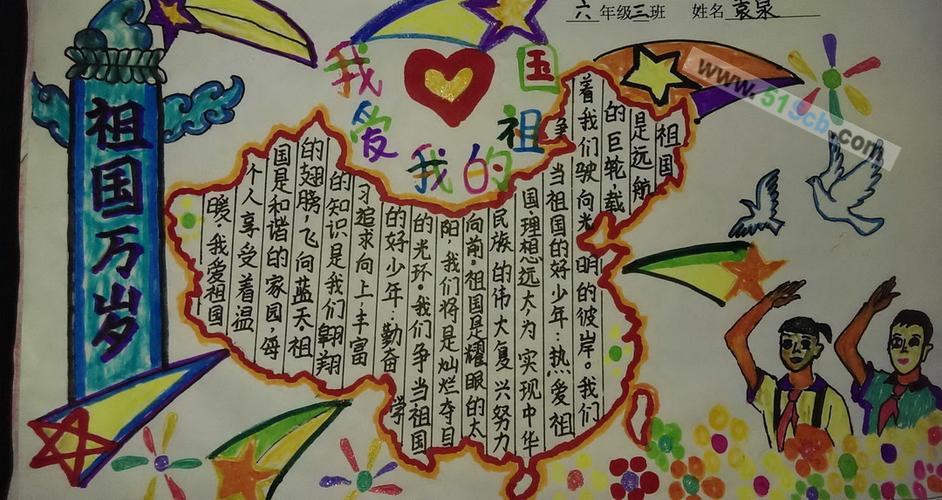 六年级三班 姓名袁泉
我爱我的祖国
祖国万岁
祖国
是远航
的巨轮,载
着我们驶向光明的彼岸。我们
争当祖国的好少年:热爱祖
国理想远大,为实现中华
民族的伟大复兴努力
向前。祖国是耀眼的太
阳,我们将是灿烂夺目
的光环。我们争当祖国
的好少年:勤奋学
习追求向上丰富
的知识是我们翱翔
的翅膀,飞向蓝天。祖
国是和谐的家园,每
个人享受着温
暖。我爱祖国
www.519cb.com